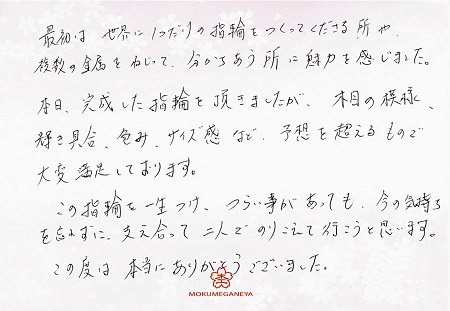 最初は 世界に1つだけの指輪をつくってくださる所や、
複数の金属をねじって、分かちあう所に魅力を感じました。
本日、完成した指輪を頂きましたが、木目の模様、
輝き具合、包み、サイズ感など、予想を超えるもので
大変満足しております。
この指輪を一生つけ、つらい事があっても、今の気持ち
を忘れずに、支え合って二人でのりこえて行こうと思います。
この度は 本当にありがとうございました。
MOKUMEGANEYA